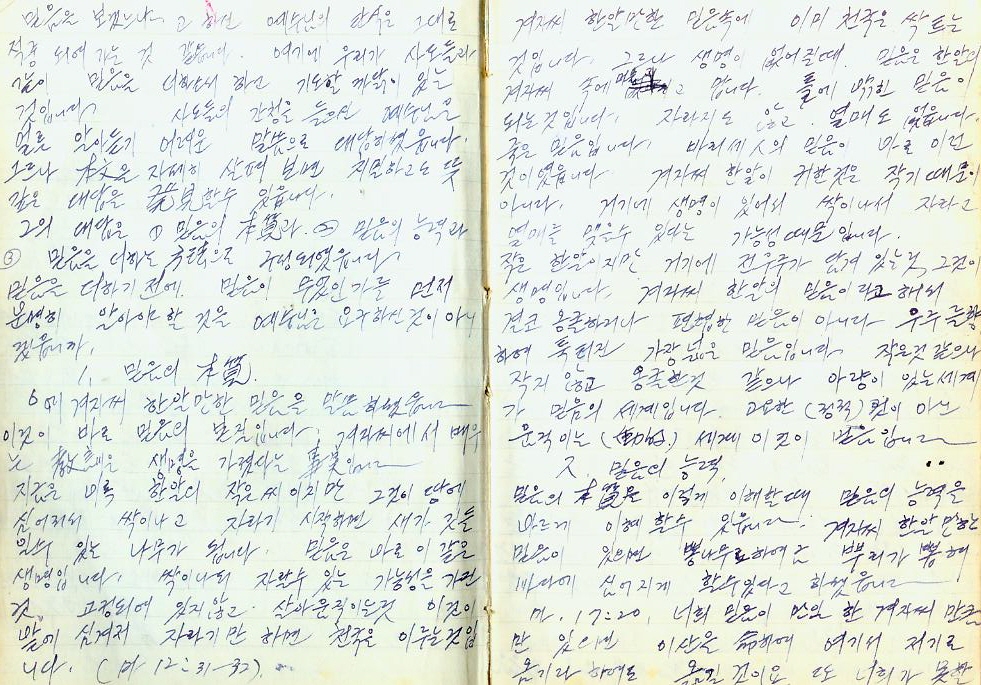 믿음을 보겠느냐. 고 하신 예수님의 말씀을 그대로
적중 되어 가는 것 같습니다. 여기에 우리가 사도들과
같이 믿음을 더하소서 하고 기도할 까닭이 있는
것입니다. 사도들의 간청을 들으신 예수님은
얼른 알아듣기 어려운 말씀으로 대답하였읍니다.
그러나 本文을 자세히 살펴 보면 치밀하고도 뜻
깊은 대답을 発見할수 있읍니다.
그의 대답은 ① 믿음의 本質과. ② 믿음의 능력과
③ 믿음을 더하는 方法으로 구성되였읍니다.
믿음을 더하기 전에. 믿음이 무엇인가를 먼저
분명히 알아야 할 것을 예수님은 요구하신것이 아니
겠읍니까.
1. 믿음의 本質.
6에 겨자씨 한알만한 믿음을 말씀하셨읍니다
이것이 바로 믿음의 본질입니다. 겨자씨에서 배우
는 教훈은 생명을 가졌다는 事実입니다
지금은 비록 한알의 작은 씨이지만 그것이 땅에
심어져 싹이나고 자라기 시작하면 새가 깃들
일수 있는 나무가 됩니다. 믿음은 바로 이 같은
생명입니다. 싹이나와 자랄수 있는 가능성을 가진
것, 고정되여 있지않고 살아움직이는것 이것이
맘에 심겨저 자라기만 하면 천국을 이루는것입
니다. (마 12:31-32).
겨자씨 한알만한 믿음속에 이미 천국은 싹트는
것입니다. 그러나 생명이 없어질때 믿음은 한알의
겨자씨 속에 고 맙니다. 틀에 박힌 믿음이
되는것입니다. 자라지도 않고 열매도 없읍니다.
죽은 믿음입니다. 바리새人의 믿음이 바로 이런
것이였읍니다. 겨자씨 한알이 귀한것은 작기 때문이
아니라. 거기에 생명이 있어서 싹이나서 자라고
열매를 맺을수 있다는 가능성 때문입니다.
작은 한알이지만 거기에 전우주가 담겨 있는것, 그것이
생명입니다. 겨자씨 한알의 믿음이라고 해서
결코 옹졸하거나 편협한 믿음이 아니라 우주를 향
하여 툭터진 가장 넓은 믿음입니다. 작은것 같으나
작지 않고 옹졸한것 같으나 아량이 있는 세계
가 믿음의 세계입니다. 고요한 (정적) 것이 아닌
움직이는 (動的) 세계 이것이 믿음입니다
2. 믿음의 능력.
믿음의 本質을 이렇게 이해할때 믿음의 능력을
바르게 이해 할수 있읍니다. 겨자씨 한알 만한
믿음이 있으면 뽕나무로하여금 뿌리가 뽑혀
바다에 심어지게 할수있다고 하셨읍니다
마. 17:20, 너희 믿음이 만일 한 겨자씨 만큼
만 있으면 이산을 命하여 여기서 저기로
옮기라 하여도 옮길 것이요 또 너희가 못할